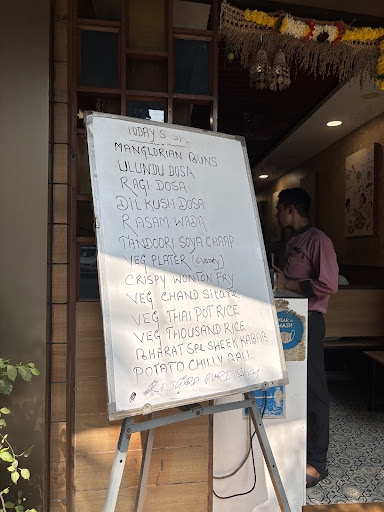 TODAY'S SPL
MANGLORIAN BUNS
ULUNDU DOSA
RAGI DOSA
DILKUSH DOSA
RASAM WADA
TANDOORI SOYA CHAAP
VEG PLATER
CRISPY WONTON FRY
VEG CHAND
VEG THAI POT RICE
VEG THOUSAND RICE
BHARAT SPL SHEEK KABABS
POTATO CHILLY BALL
WEAR A
MASK